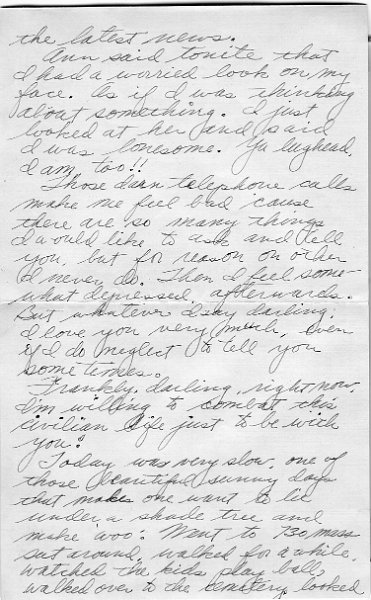 the latest news.
Ann said tonite that
I had a worried look on my
face. As if I was thinking
about something. I just
looked at her and said
I was lonesome. Ya lughead,
I am too!!
Those darn telephone calls
make me feel bad 'cause
there are so many things
I would like to ask and tell
you, but for reason on other
I never do. Then I feel some-
what depressed, afterwards.
But whatever I say darling,
I love you very much, even
if I do neglect to tell you
sometimes.
Frankly, darling, right now,
I'm willing to combat this
civilian life just to be with
you.
Today was very slow, one of
those beautiful sunny days
that makes one want to lie
under a shade tree and
make woo. Went to 730 mass
sat around, walked for a while,
watched the kids play ball,
walked over to the cemetery looked